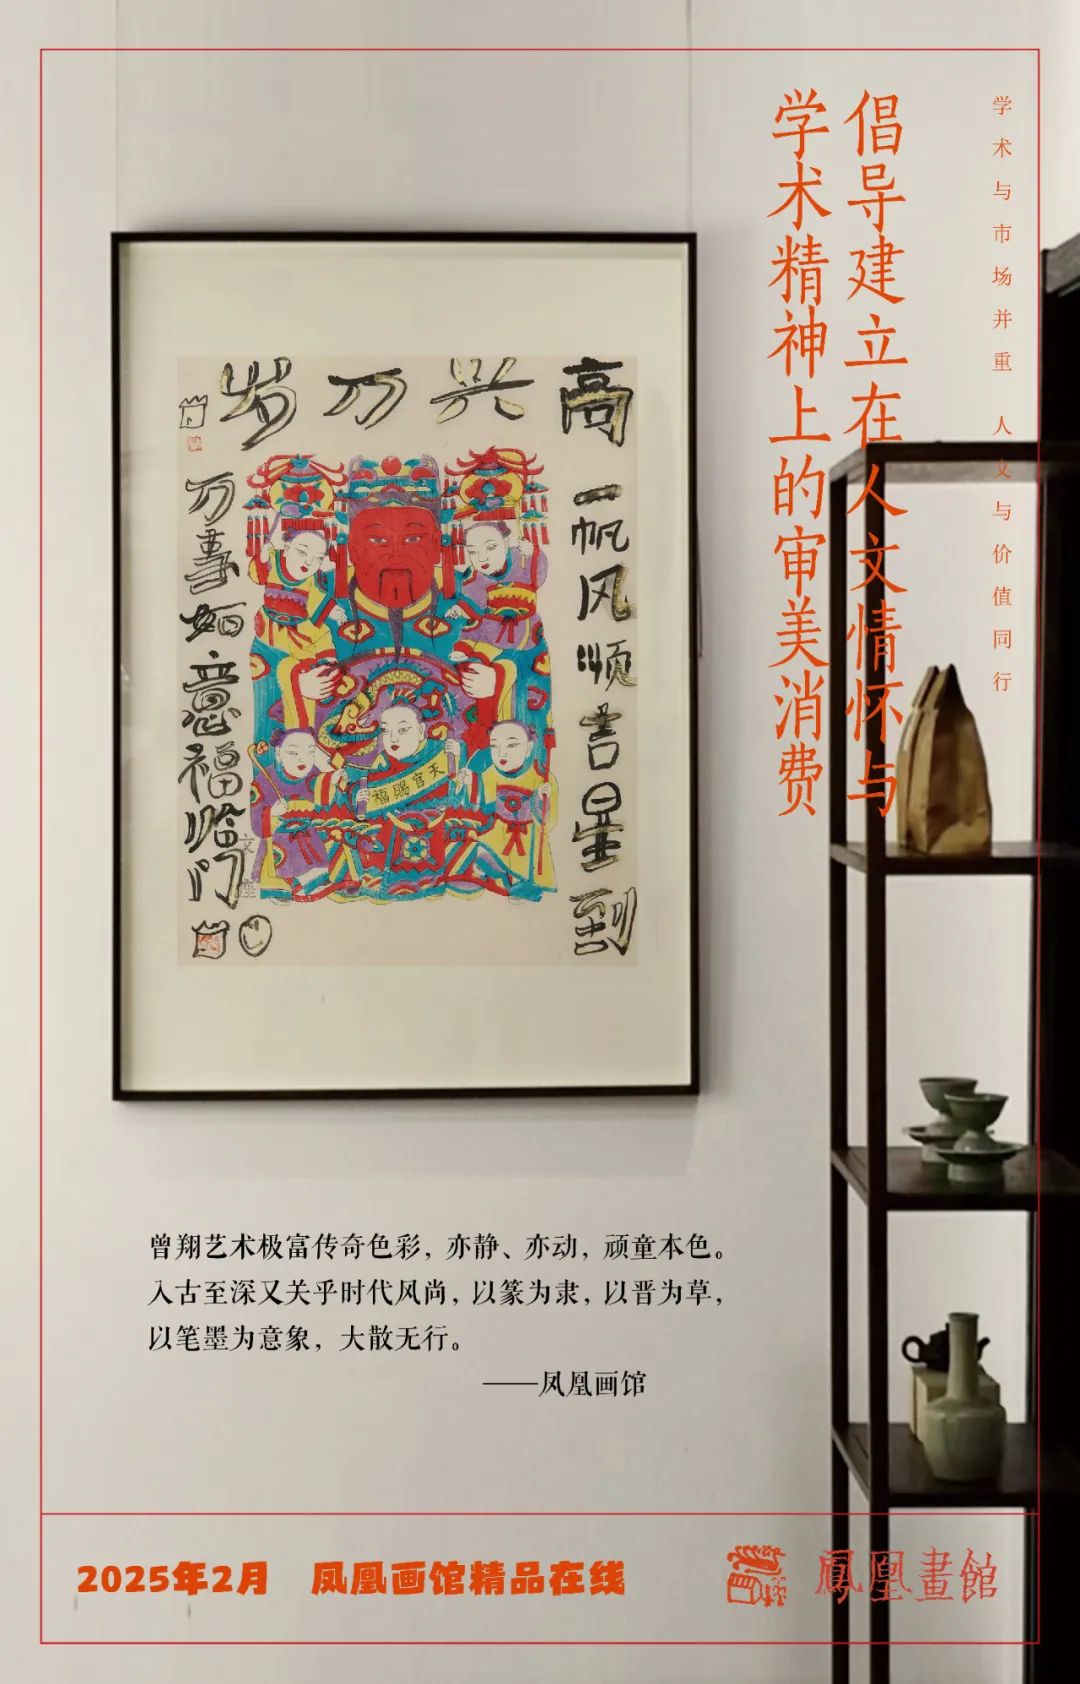 学术与市场并重 人文与价值同行
倡导建立在人文情怀与
学术精神上的审美消费
高兴万岁
一帆风顺吉星到
万事如意福临门
天官賜福
曾翔艺术极富传奇色彩，亦静、亦动，顽童本色。
入古至深又关乎时代风尚，以篆为隶，以晋为草，
以笔墨为意象，大散无行。
——凤凰画馆
2025年2月 凤凰画馆精品在线
鳳凰畫館